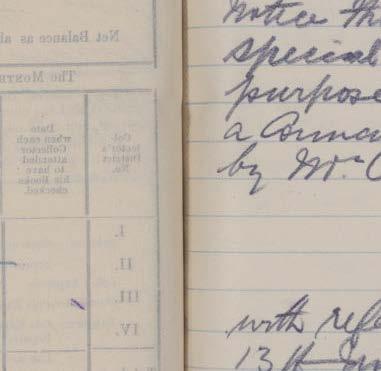 Net Balance as a
The Month
Date
when each
Collector
attended
to have
his Books
checked.
Col-
lector's
District
No.
I.
II.
III.
IV.
notice th
special
purpose
a
by Mr C
with refe
13th